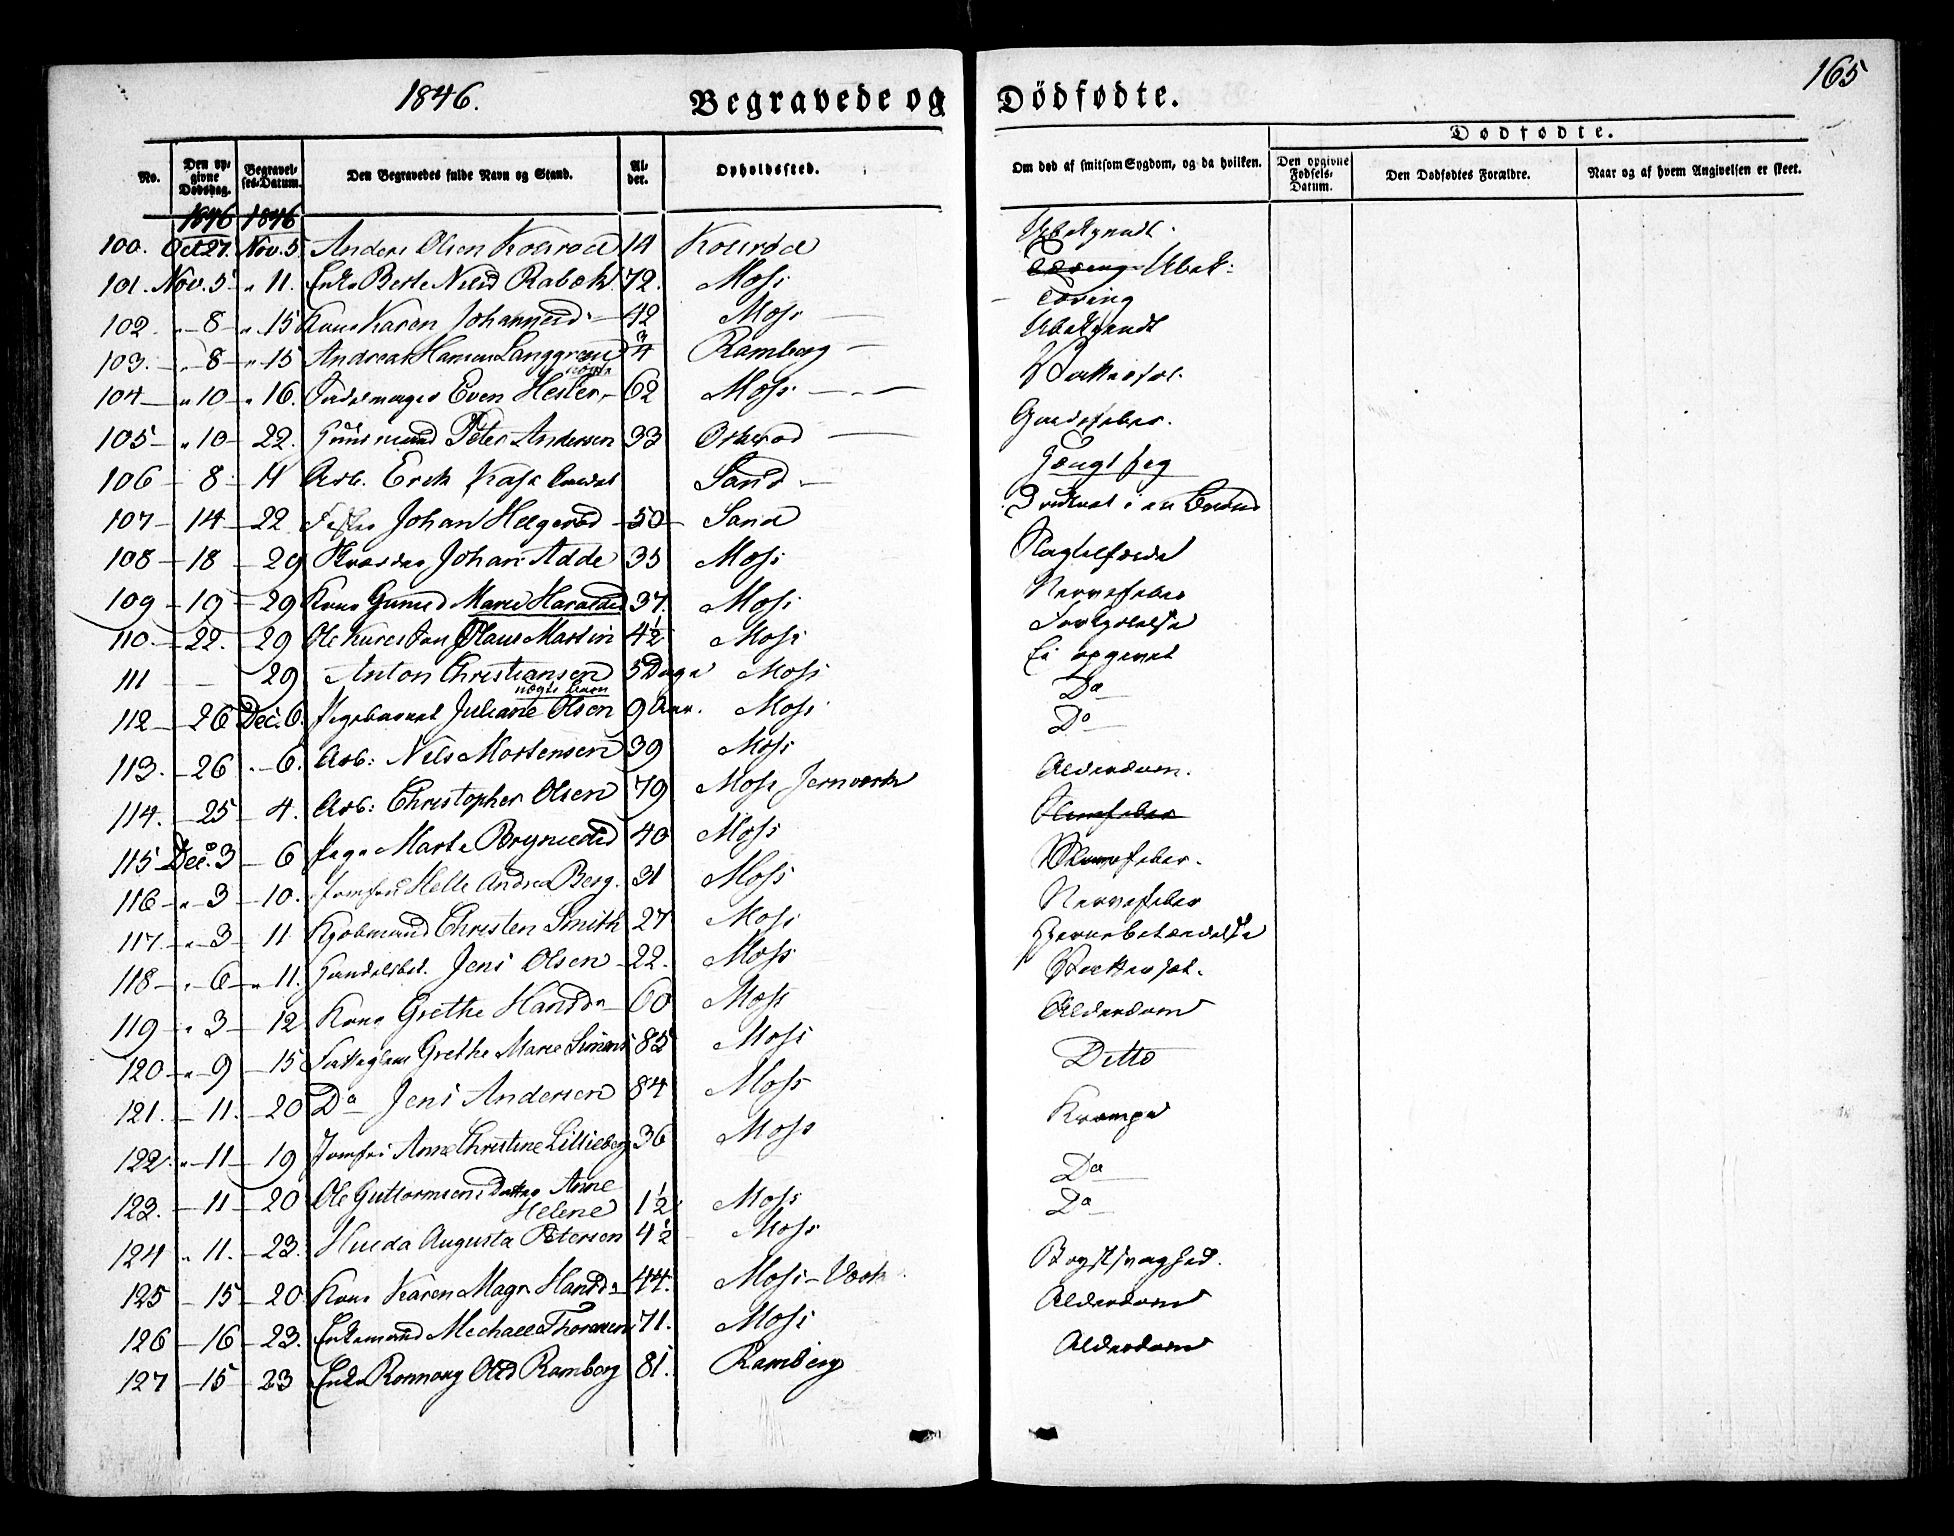 1846.
Begravede og Dödfødte.
165
No. Den opgivne Dødsdag. Begravelses-Datum. Den Begravedes fulde Navn og Stand. Alder. Opholdssted. Om død af smitsom Sygdom, og da hvilken.
Dødfødte.
Den opgivne Fødsels-Datum. Den Dødfødtes Forældre. Naar og af hvem Angivelsen er skeet.
1846 1846
100. Oct 27. Nov. 5. Anders Olsen 14 Ubekjendt.
101. Nov. 5 " 11. Enke Berte Nilsd Rabæk 72. Moss Ubek:
102. " 8 " 15 Kone Karen Johannesd. 42 Moss Tæring
103. " 8 " 15 Andreas Hansen Langgreen 3/4 Ramberg Ubekjendt
104 " 10 " 16. Even Hesler 62 Moss
105 " 10 22. Huusmand Peter Andersen 33 Orkerød
106 8 11 Arb. Erik Sand
107 14 22 Johan Helgerød 50 Sand Druknet i en Brønd
108 18 29 Skræder Johan Adde 35 Moss Slagtilfælde
109 19 29 Kone Gunild Marie Haraldsd 37. Moss Nervefeber
110. 22. 29 Ole Kures Søn Olaus Martin 4 1/2 Moss Forkjølelse
111 29 Anton Christiansen 5 Dage Moss Ei opgivet
uægte barn
112 26 Dec. 6. Pigebarnet Juliane Olsen 9 Aar. Moss Do
113. 26 6. Arb: Nils Mortensen 39 Moss Do
114. 25 4. Arb: Christopher Olsen 79 Moss Jernværk Alderdom.
115 Dec. 3 6 Pige Marte Brynildsd 40 Moss
116 " 3 10. Jomfru Helle Andrea Berg. 31 Moss
117. " 3 11 Kjøbmand Christen Smith 27 Moss Nervefeber
118 " 6 " 11. Handelsbet. Jens Olsen 22. Moss Hjernebetændelse
119 " 3 12 Kone Grethe Hansd. 60 Moss
120 " 9 15 Fattiglem Grethe Marie Simens 85 Moss Alderdom
121. 11. 20 Do Jens Andersen 84 Moss Ditto
122. " 11 19 Jomfru Anne Christine Lillieberg 36 Moss Krampe
123. 11 20 Ole Guttormsens Datter Anne Helene 1 1/2 Moss Do
124 " 11. 23. Hulda Augusta Petersen 4 1/2 Moss Do
125 15 20 Kone Karen Magr. Hansd. 44. Moss Værk Brystsvaghed.
126 16 23. Enkemand Michael Thoresen 71. Moss Alderdom
127 15 23 Enke Ronnaug Olsd Ramberg 81. Ramberg Alderdom